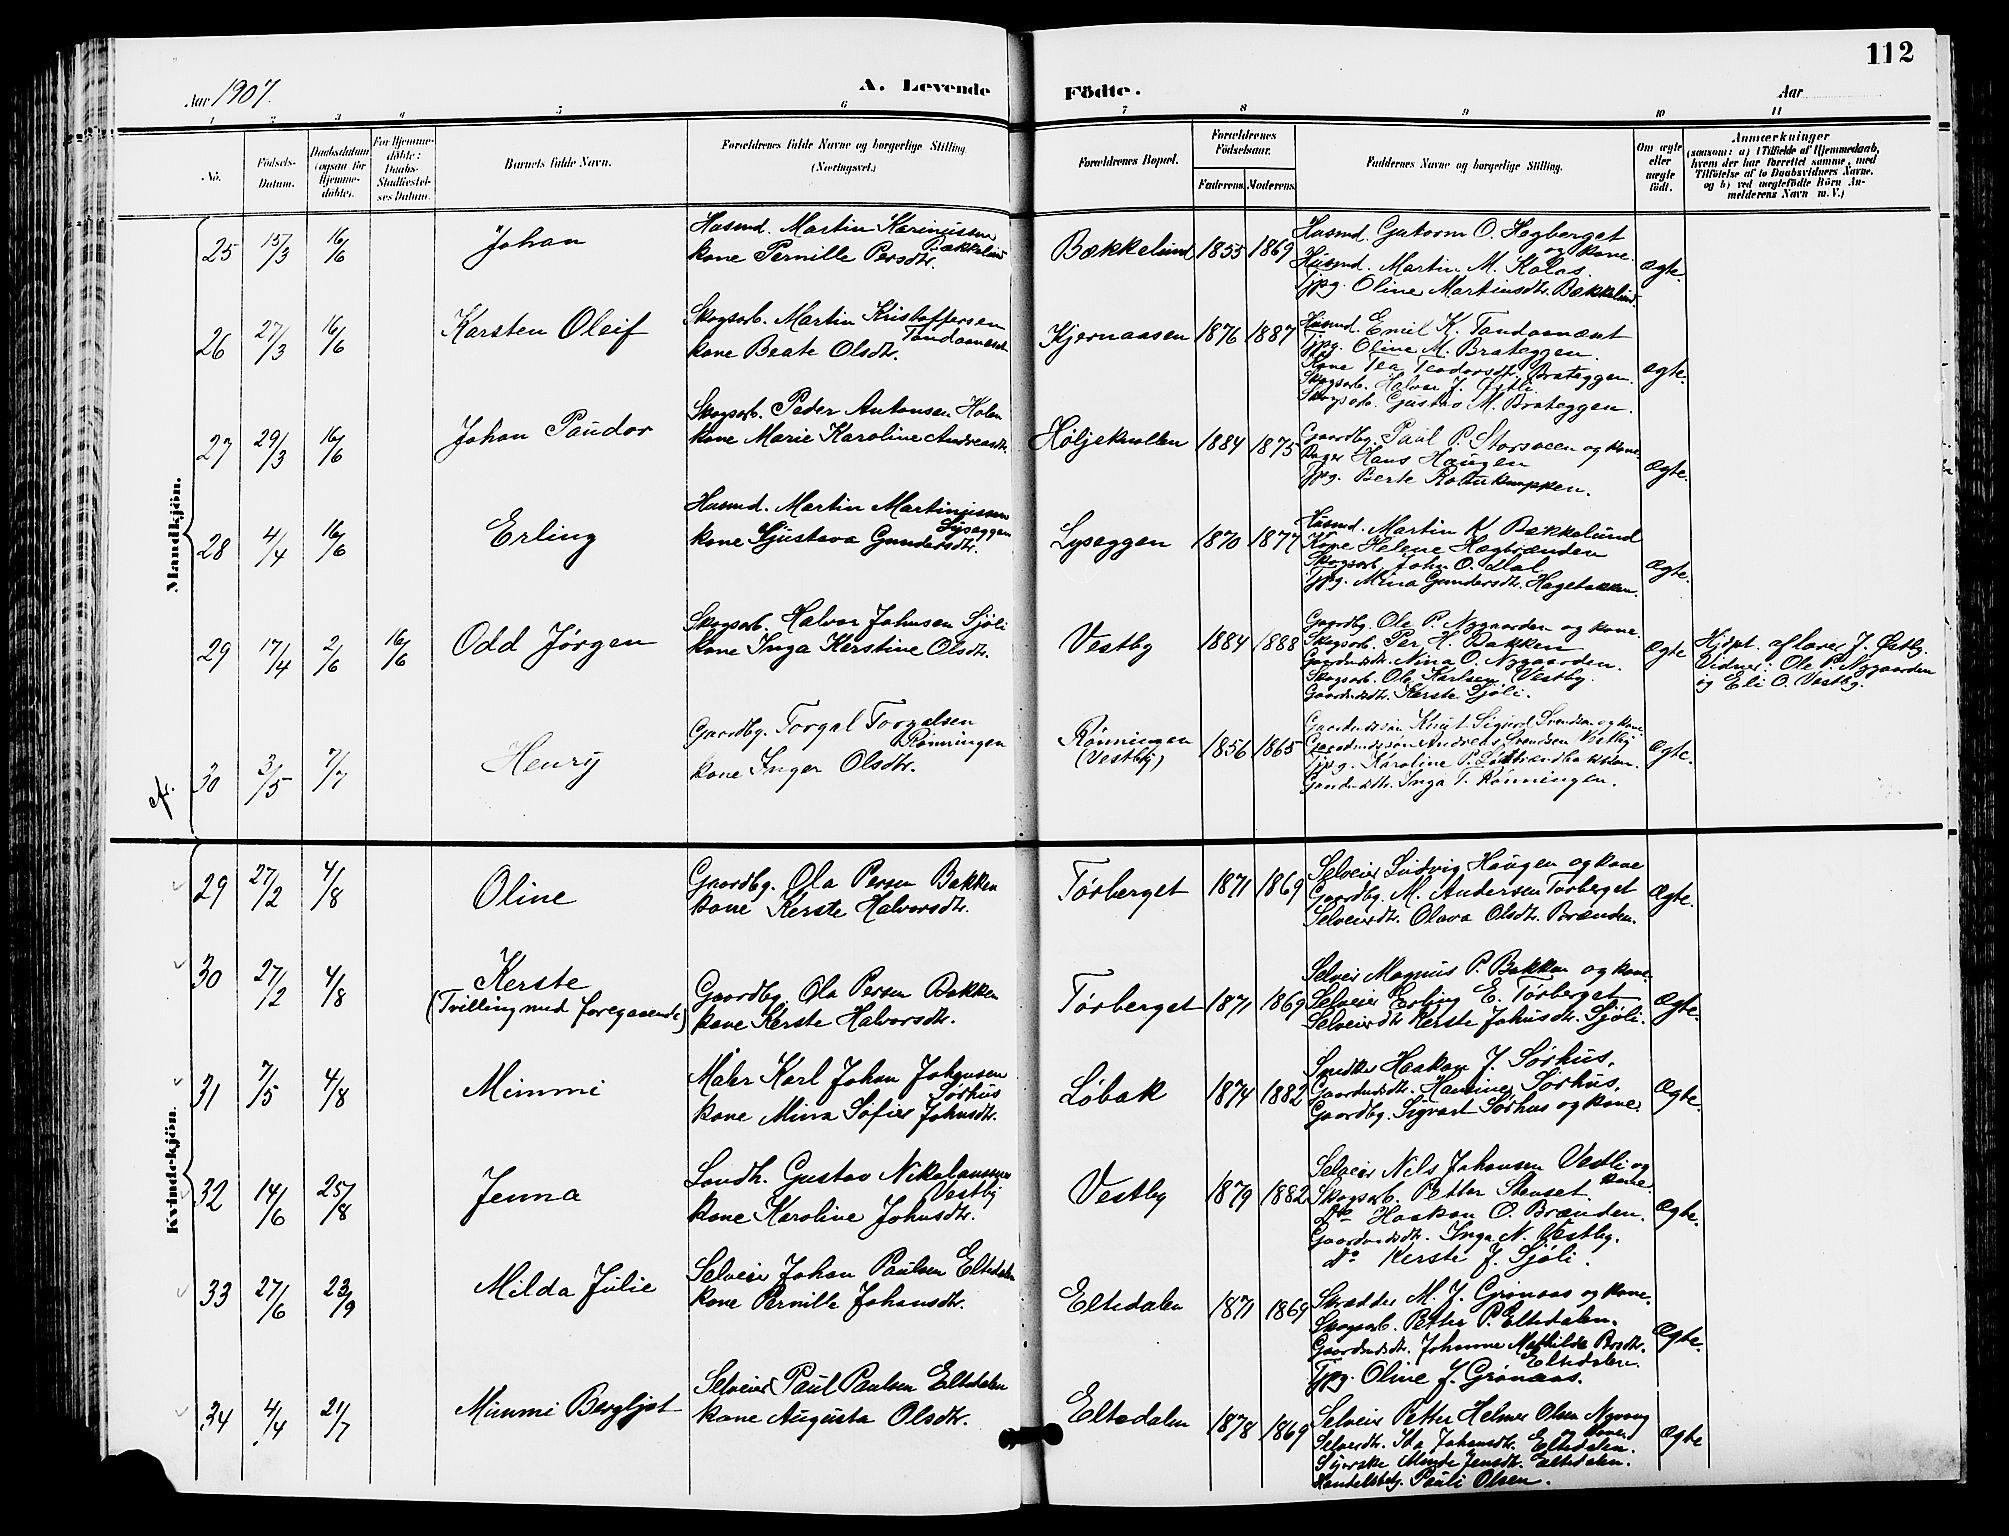 112
Aar 1907.
A. Levende Födte.
Aar
1 2 3 4 5 6 7 8 9 10 11
No.
Födsels-Datum.
Daabsdatum (ogsaa för Hjemme-döbte).
For Hjemme-döbte: Daabs-Stadfæstel-ses Datum.
Barnets fulde Navn.
Forældrenes fulde Navne og borgerlige Stilling (Næringsvei.)
Forældrenes Bopæl.
Forældrenes Födselsaar.
Faderens. Moderens.
Faddernes Navne og borgerlige Stilling.
Om ægte eller uægte født.
Anmærkninger
(saasom: a) i Tilfælde af Hjemmedaab, hvem der har forrettet samme, med Tilföielse af to Daabsvidners Navne, og b) ved uægtefödte Börn An-melderens Navn m. V.)
Mandkjön.
25 15/3 16/6 Johan
Husmd. Martin Karinussen Bækkelund
kone Pernille Persdtr.
Bækkelund 1855 1869
Husmd. Gutorm O. Hegberget og kone
Husmd. Martin M. Kolos.
Tjpg. Oline Martinsdtr. Bækkelund
Ægte.
26 27/3 16/6 Karsten Oleif
Skogsarb. Martin Kristoffersen Tandaanæset
kone Beate Olsdtr.
Kjernaasen 1876 1887
Husmd. Emil K. Tandaanæset
Tjpg. Oline M. Brateggen.
Kone Tea Teodorsdtr. Brateggen.
Skogsarb. Halvor J.
Skogsarb. Gustav M. Brateggen.
Ægte.
27 29/3 16/6 Johan Paudor
Skogsarb. Peder Antonsen Holen
kone Marie Karoline Andreasdtr.
Höljeknollen 1884 1875
Gaardbg. Paul P. Storsveen og kone
Hans Haugen
Tjpg. Berte
Ægte.
28 4/4 16/6 Erling
Husmd. Martin Martinussen Lyseggen
kone Gjustava Gundersdtr.
Lyseggen 1870 1877
Husmd. Martin K. Bækkelund
Kone Helene Hægbrænden
Skogsarb. John O. Dal.
Tjpg. Mina Gundersdtr. Hagebakken.
Ægte.
29 17/4 2/6 16/6 Odd Jörgen
Skogsarb. Halvor Johnsen Sjöli
kone Inga Kerstine Olsdtr.
Vestby 1884 1888
Gaardbg. Ole P. Nygaarden og kone.
Skogsarb. Per H. Bakken
Gaardmdsdtr. Nina O. Nygaarden.
Skogsarb. Ola Karlsen Vestby.
Gaardmdsdtr. Kerste Sjöli.
Ægte
Hjdpt. af lærer J. Østby.
Vidner: Ole P. Nygaarden
og Eli O. Vestby.
30 3/5 7/7 Henry
Gaardbg. Torgal Torgalsen Rönningen
kone Inger Olsdtr.
Rönningen (Vestby) 1856 1865
Gaardmdssön Knut Sigurd Svendsen og kone
Gaardmdssön Andreas Svendsen Vestby
Tjpg. Karoline P.
Gaardmdsdtr. Inga T. Rönningen.
Ægte.
Kvindekjön.
29 27/2 4/8 Oline
Gaardbg. Ola Persen Bakken
kone Kerste Halvorsdtr.
Törberget 1871 1869
Selveier Ludvig Haugen og kone
Gaardbg. M. Andersen Törberget
Selveierdtr. Olava Olsdtr. Brænden.
Ægte.
30 27/2 4/8 Kerste
(Tvilling med foregaaende)
Gaardbg. Ola Persen Bakken
kone Kerste Halvorsdtr.
Törberget 1871 1869
Selveier Magnus P. Bakken og kone.
Selveier Erling E. Törberget
Selveierdtr Kerste Johnsdtr. Sjöli.
Ægte.
31 7/5 4/8 Mimmi
Maler Karl Johan Johansen Sörhus
kone Mina Sofie Johnsdtr.
Löbak 1874 1882
Snedker Haakon J. Sörhus.
Gaardmdsdtr. Hansine Sörhus.
Gaardbg. Sigvart Sörhus og kone.
Ægte.
32 14/6 25/8 Jenna
Landh. Gustav Nikolaussen Vestby
kone Karoline Johnsdtr.
Vestby 1879 1882
Selveier Nils Johansen Vestli og kone.
Skogsarb. Petter Stenset.
Do Haakon O. Brænden.
Gaardmdsdtr. Inga N. Vestby.
do Kerste J. Sjöli.
Ægte.
33 27/6 22/9 Milda Julie
Selveier Johan Paulsen Eltsdalen
kone Pernille Johansdtr.
Eltsdalen 1871 1869
Skrædder M. J. Grönaas og kone.
Skogsarb. Petter P. Eltsdalen.
Gaardmdsdtr. Johanne Mathilde Eltsdalen.
Tjpg. Oline J. Grönaas.
Ægte.
34 4/4 21/7 Mimmi Bergljot
Selveier Paul Paulsen Eltsdalen
kone Augusta Olsdtr.
Eltsdalen 1878 1869
Selveier Petter Helmer Olsen Nyvang og kone
Selveierdtr. Ida Johansdtr. Eltsdalen.
Syerske Minda Jensdtr. Eltsdalen.
Handelsbetj. Pauli Olsen.
Ægte